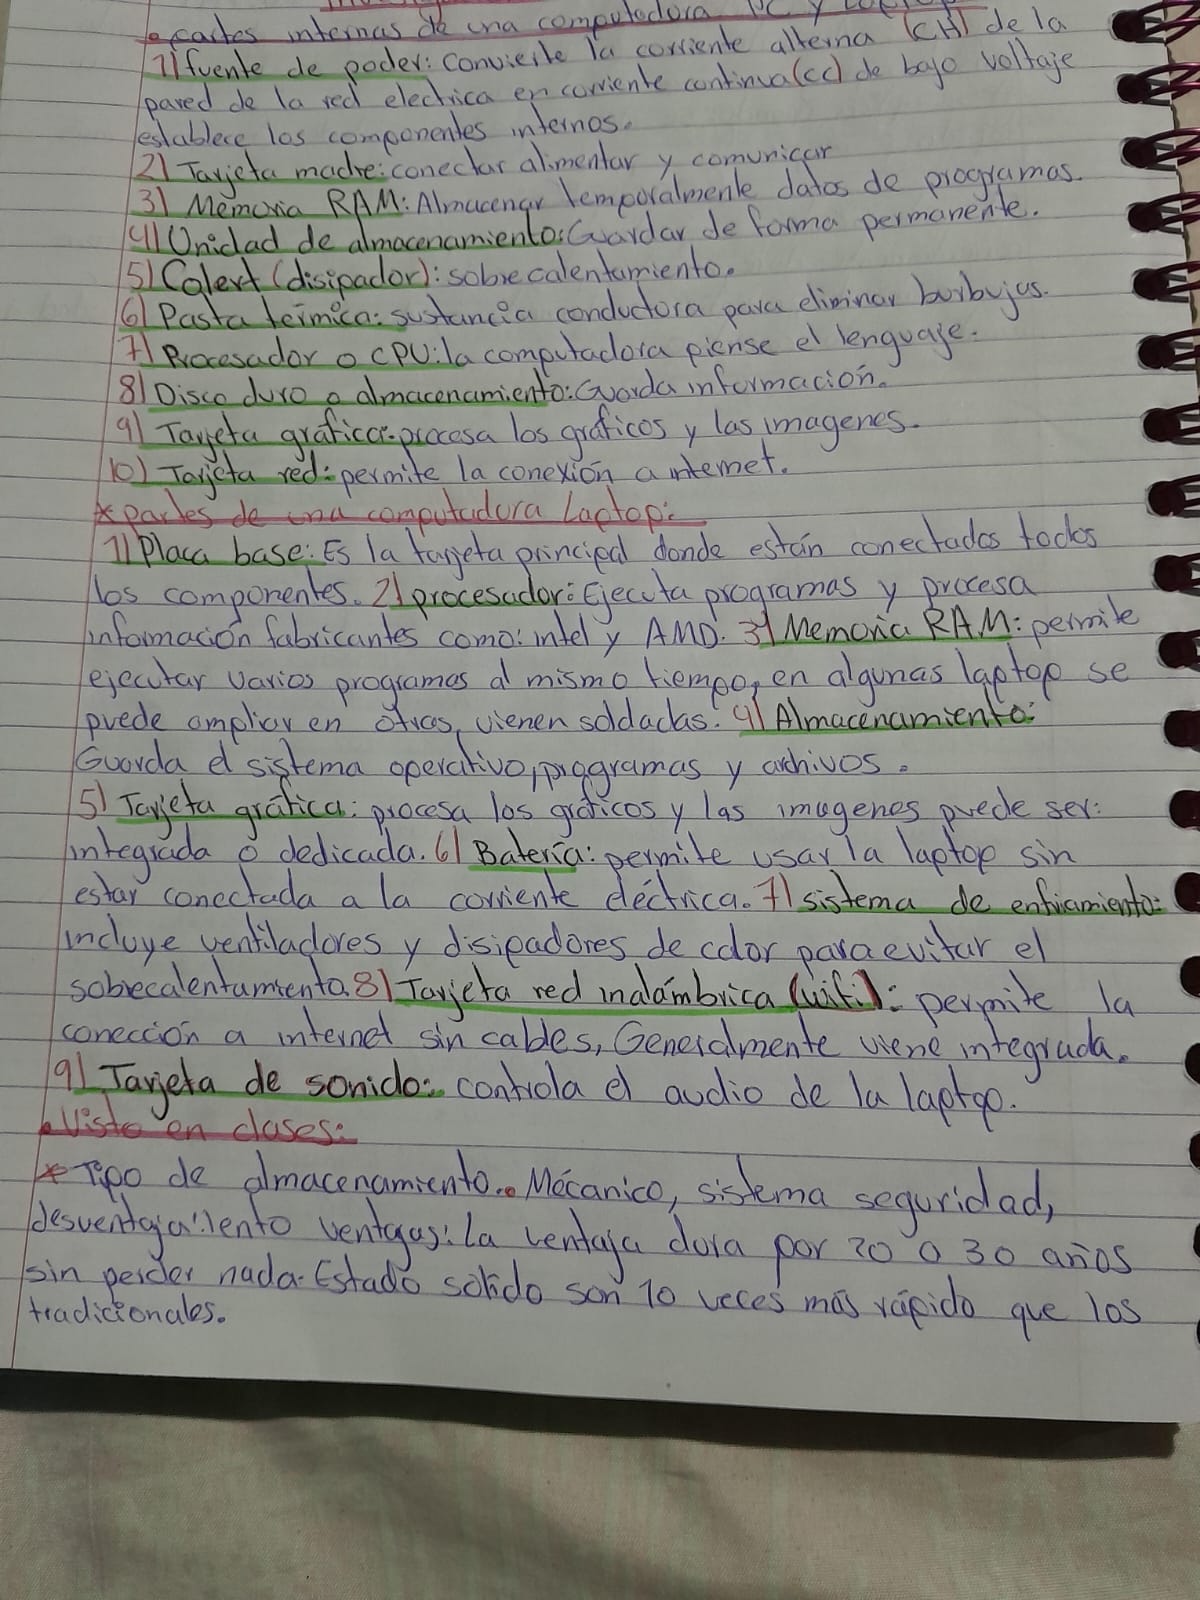 partes internas de una computadora PC y
1) fuente de poder: Convierte la corriente alterna (CA) de la
pared de la red electrica en corriente continua (cc) de bajo voltaje
establece los componentes internos.
2) Tarjeta madre: conectar alimentar y comunicar
3) Memoria RAM: Almacenar temporalmente datos de programas.
4) Unidad de almacenamiento: Guardar de forma permanente.
5) Calert (disipador): sobrecalentamiento.
6) Pasta térmica: sustancia conductora para eliminar burbujas.
7) Procesador o CPU: la computadora piense el lenguaje.
8) Disco duro o almacenamiento: Guarda información.
9) Tarjeta gráfica: procesa los gráficos y las imagenes.
10) Tarjeta red: permite la conexión a internet.
* partes de una computadora Laptop:
1) Placa base: Es la tarjeta principal donde están conectados todos
los componentes. 2) procesador: Ejecuta programas y procesa
información fabricantes como: intel y AMD. 3) Memoria RAM: permite
ejecutar varios programas al mismo tiempo, en algunas laptop se
puede ampliar en otras, vienen soldadas. 4) Almacenamiento:
Guarda el sistema operativo, programas y archivos.
5) Tarjeta gráfica: procesa los gráficos y las imagenes puede ser:
integrada o dedicada. 6) Batería: permite usar la laptop sin
estar conectada a la corriente eléctrica. 7) sistema de enfriamiento:
incluye ventiladores y disipadores de calor para evitar el
sobrecalentamiento. 8) Tarjeta red inalámbrica (wifi): permite la
conección a internet sin cables, Generalmente viene integrada.
9) Tarjeta de sonido: controla el audio de la laptop.
• Visto en clases:
* Tipo de almacenamiento. Mécanico, sistema seguridad,
desventaja: lento ventajas: La ventaja dura por 20 o 30 años
sin perder nada. Estado solido son 10 veces más rápido que los
tradicionales.